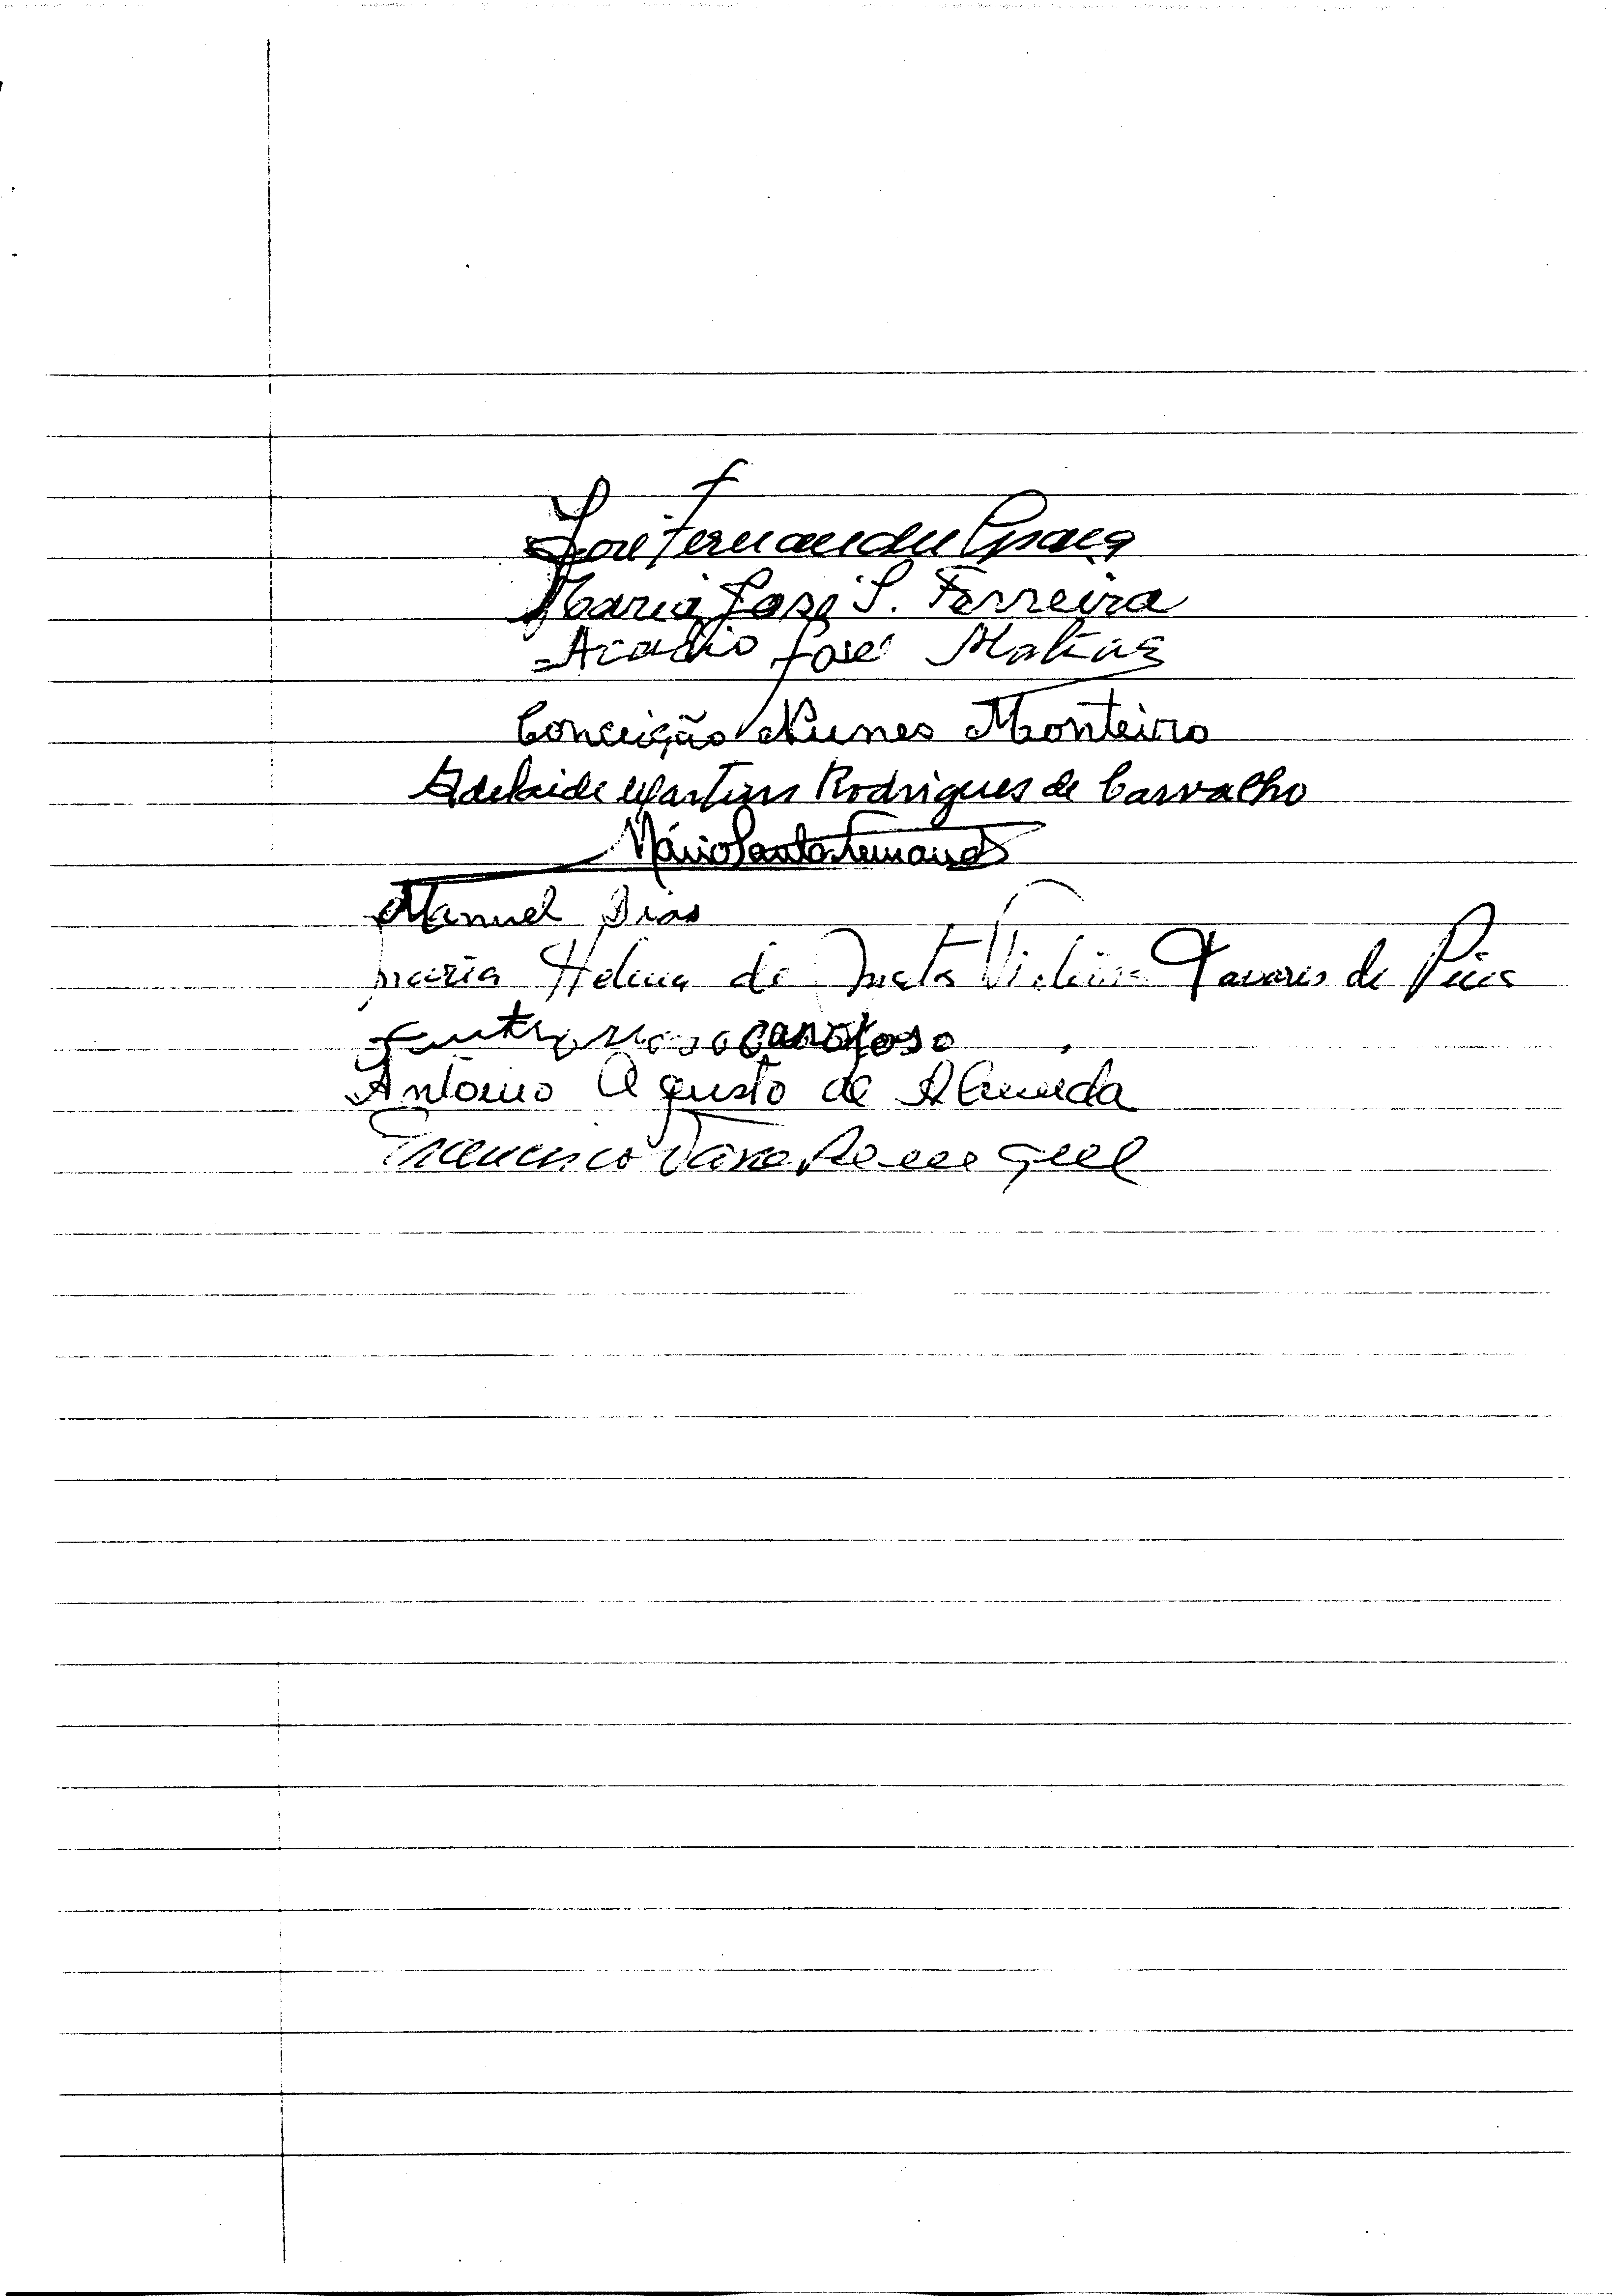 José Fernandes Graça
Maria José S. Ferreira
Acacio José Matias
Conceição Nunes Monteiro
Adelaide Martins Rodrigues de Carvalho
Mário Santos Fernandes
Manuel Dias
Maria Helena de Tavares de Pina
Cardoso
Antonio Agusto de Almeida
Francisco